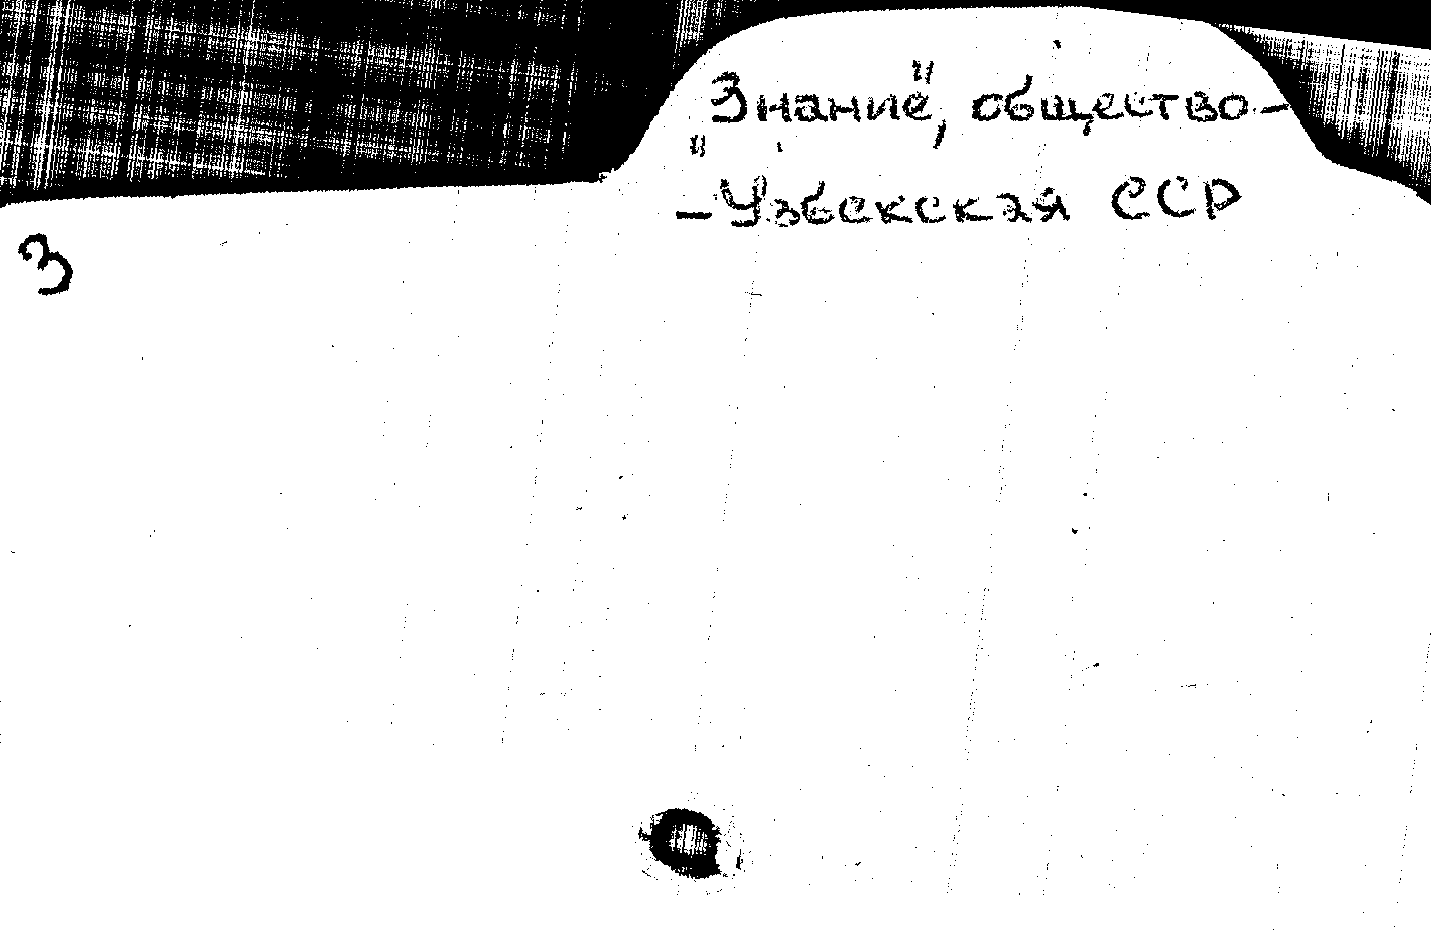 "Знание", общество-
-Узбекская ССР
З